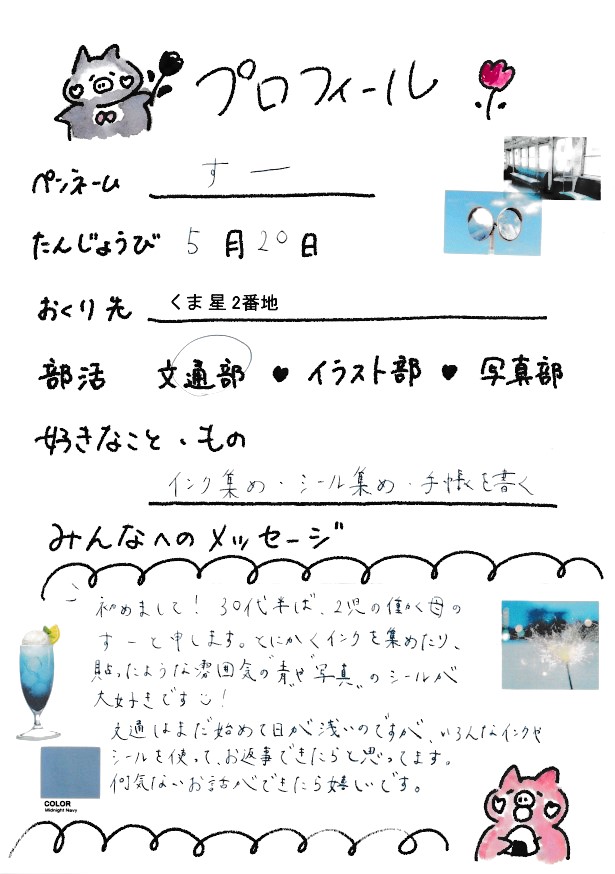 プロフィール
ペンネーム すー
たんじょうび 5月20日
おくり先 くま星2番地
部活 文通部 ♥ イラスト部 ♥ 写真部
好きなこと・もの
インク集め・シール集め・手帳を書く
みんなへのメッセージ
初めまして！30代半ば、2児の働く母の
すーと申します。とにかくインクを集めたり、
貼ったような雰囲気の"青"や"写真"のシールが
大好きです！
文通はまだ始めて日が浅いのですが、いろんなインクや
シールを使って、お返事できたらと思ってます。
何気ないお話ができたら嬉しいです。
COLOR
Midnight Navy